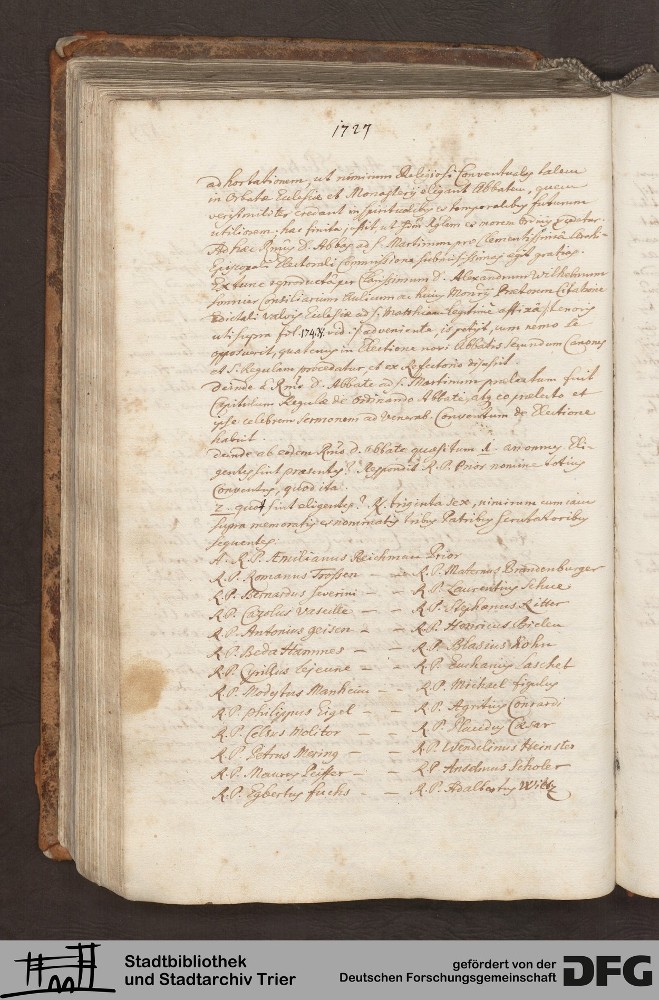 1727
adhortationem, ut nimirum Religiosi Conventuales talem
in Orbatæ Ecclesiæ et Monasterij eligant Abbatem, quem
verisimiliter credant in spiritualibus et temporalibus futurum
utiliorem; has finita
Ad hæc Rmus D. Abbas ad S. Martinum pro Clementissima Archi-
Episcopali Electorali Commissione submississimas egit gratias.
Ex tunc reproducta per Clarissimum D. Alexandrum Wilhelmum
Consiliarium Aulicum ac hujus Monrij Prætorem Citatione
Edictali valvis Ecclesiæ ad S. Matthiam legitime affixa, tenoris
uti supra fol. 174. is petijt, cum nemo se
opposuerit, quatenus in Electione novi Abbatis secundum Canones
et S. Regulam procedatur, et ex Refectorio discessit.
deinde à Rmo D. Abbate ad S. Martinum prælectum fuit
Capitulum Regulæ de Ordinando Abbate, atq eo prælecto et
ipse celebrem sermonem ad Venerab. Conventum de Electione
habuit.
deinde ab eodem Rmo D. Abbate quæsitum 1. an omnes Eli-
gentes sint præsentes? Respondit R.P. Prior nomine totius
Conventus, quod ita.
2. quot sint eligentes? R. triginta sex, nimirum cum
supra memoratis et nominatis tribus Patribus Scrutatoribus
sequentes.
A. R. P. Æmilianus Reichman Prior
R. P. Romanus Trossen - - R. P. Maternus Brandenburger
R. P. Bernardus Severini - - R. P. Laurentius Schue
R. P. Carolus Vaseille - - R. P. Stephanus Ritter
R. P. Antonius Geisen - - R. P. Henricus
R. P. Beda Hammes - - R. P. Blasius Kohn
R. P. Cyrillus Lejeune - - R. P. Eucharius Laschet
R. P. Modestus Manheim - - R. P. Michael Figulus
R. P. Philippus Eigel - - R. P. Agritius Conrardi
R. P. Celsus Molitor - - R. P. Placidus Cæsar
R. P. Petrus Mering - - R. P. Wendelinus Heinster
R. P. Maurus - - R. P. Anselmus Scholer
R. P. Egbertus Fuchs - - R. P. Adalbertus Wiltz
Stadtbibliothek
und Stadtarchiv Trier
gefördert von der
Deutschen Forschungsgemeinschaft
DFG